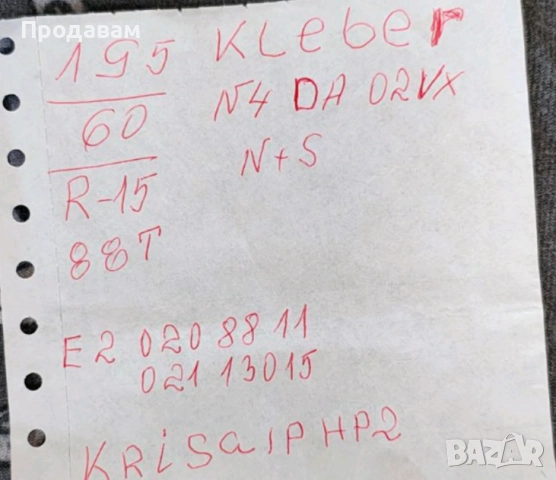 Продавам
195 Kleber
60 N4 DA 02VX
R-15 N+S
88T
E2 0208811
021 13015
KRiSaIPHP2
BAZAR